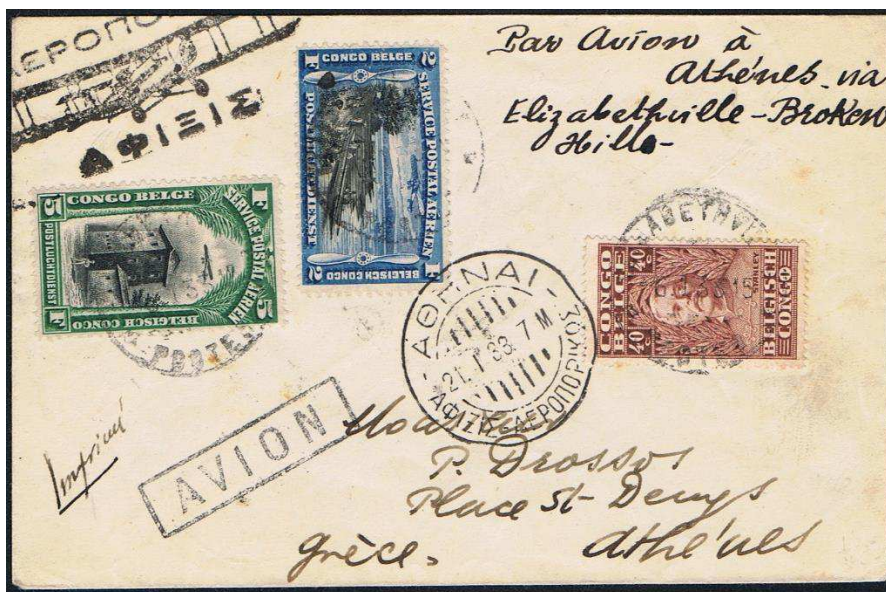 ΑΕΡΟΠΟ
ΑΦΙΞΙΣ
Par Avion à
Athénes via
Elizabethville - Broken
Hill -
2 CONGO BELGE 2
F SERVICE POSTAL AÉRIEN F
POSTLUCHTDIENST
2 BELGISCH CONGO 2
F F
5 CONGO BELGE F
F SERVICE POSTAL AÉRIEN 5
POSTLUCHTDIENST
5 BELGISCH CONGO 5
F F
CONGO BELGE
40 c 40 c
STANLEY
BELGISCH CONGO
ABETHVI
ΑΘΗΝΑΙ
21. 1 33. 7 M
ΑΦΙΞΙΣ-ΑΕΡΟΠΟΡΙΚΩΣ
AVION
Imprimé
Monsieur
P. Drossos
Place St- Denys
Athénes
Grèce.